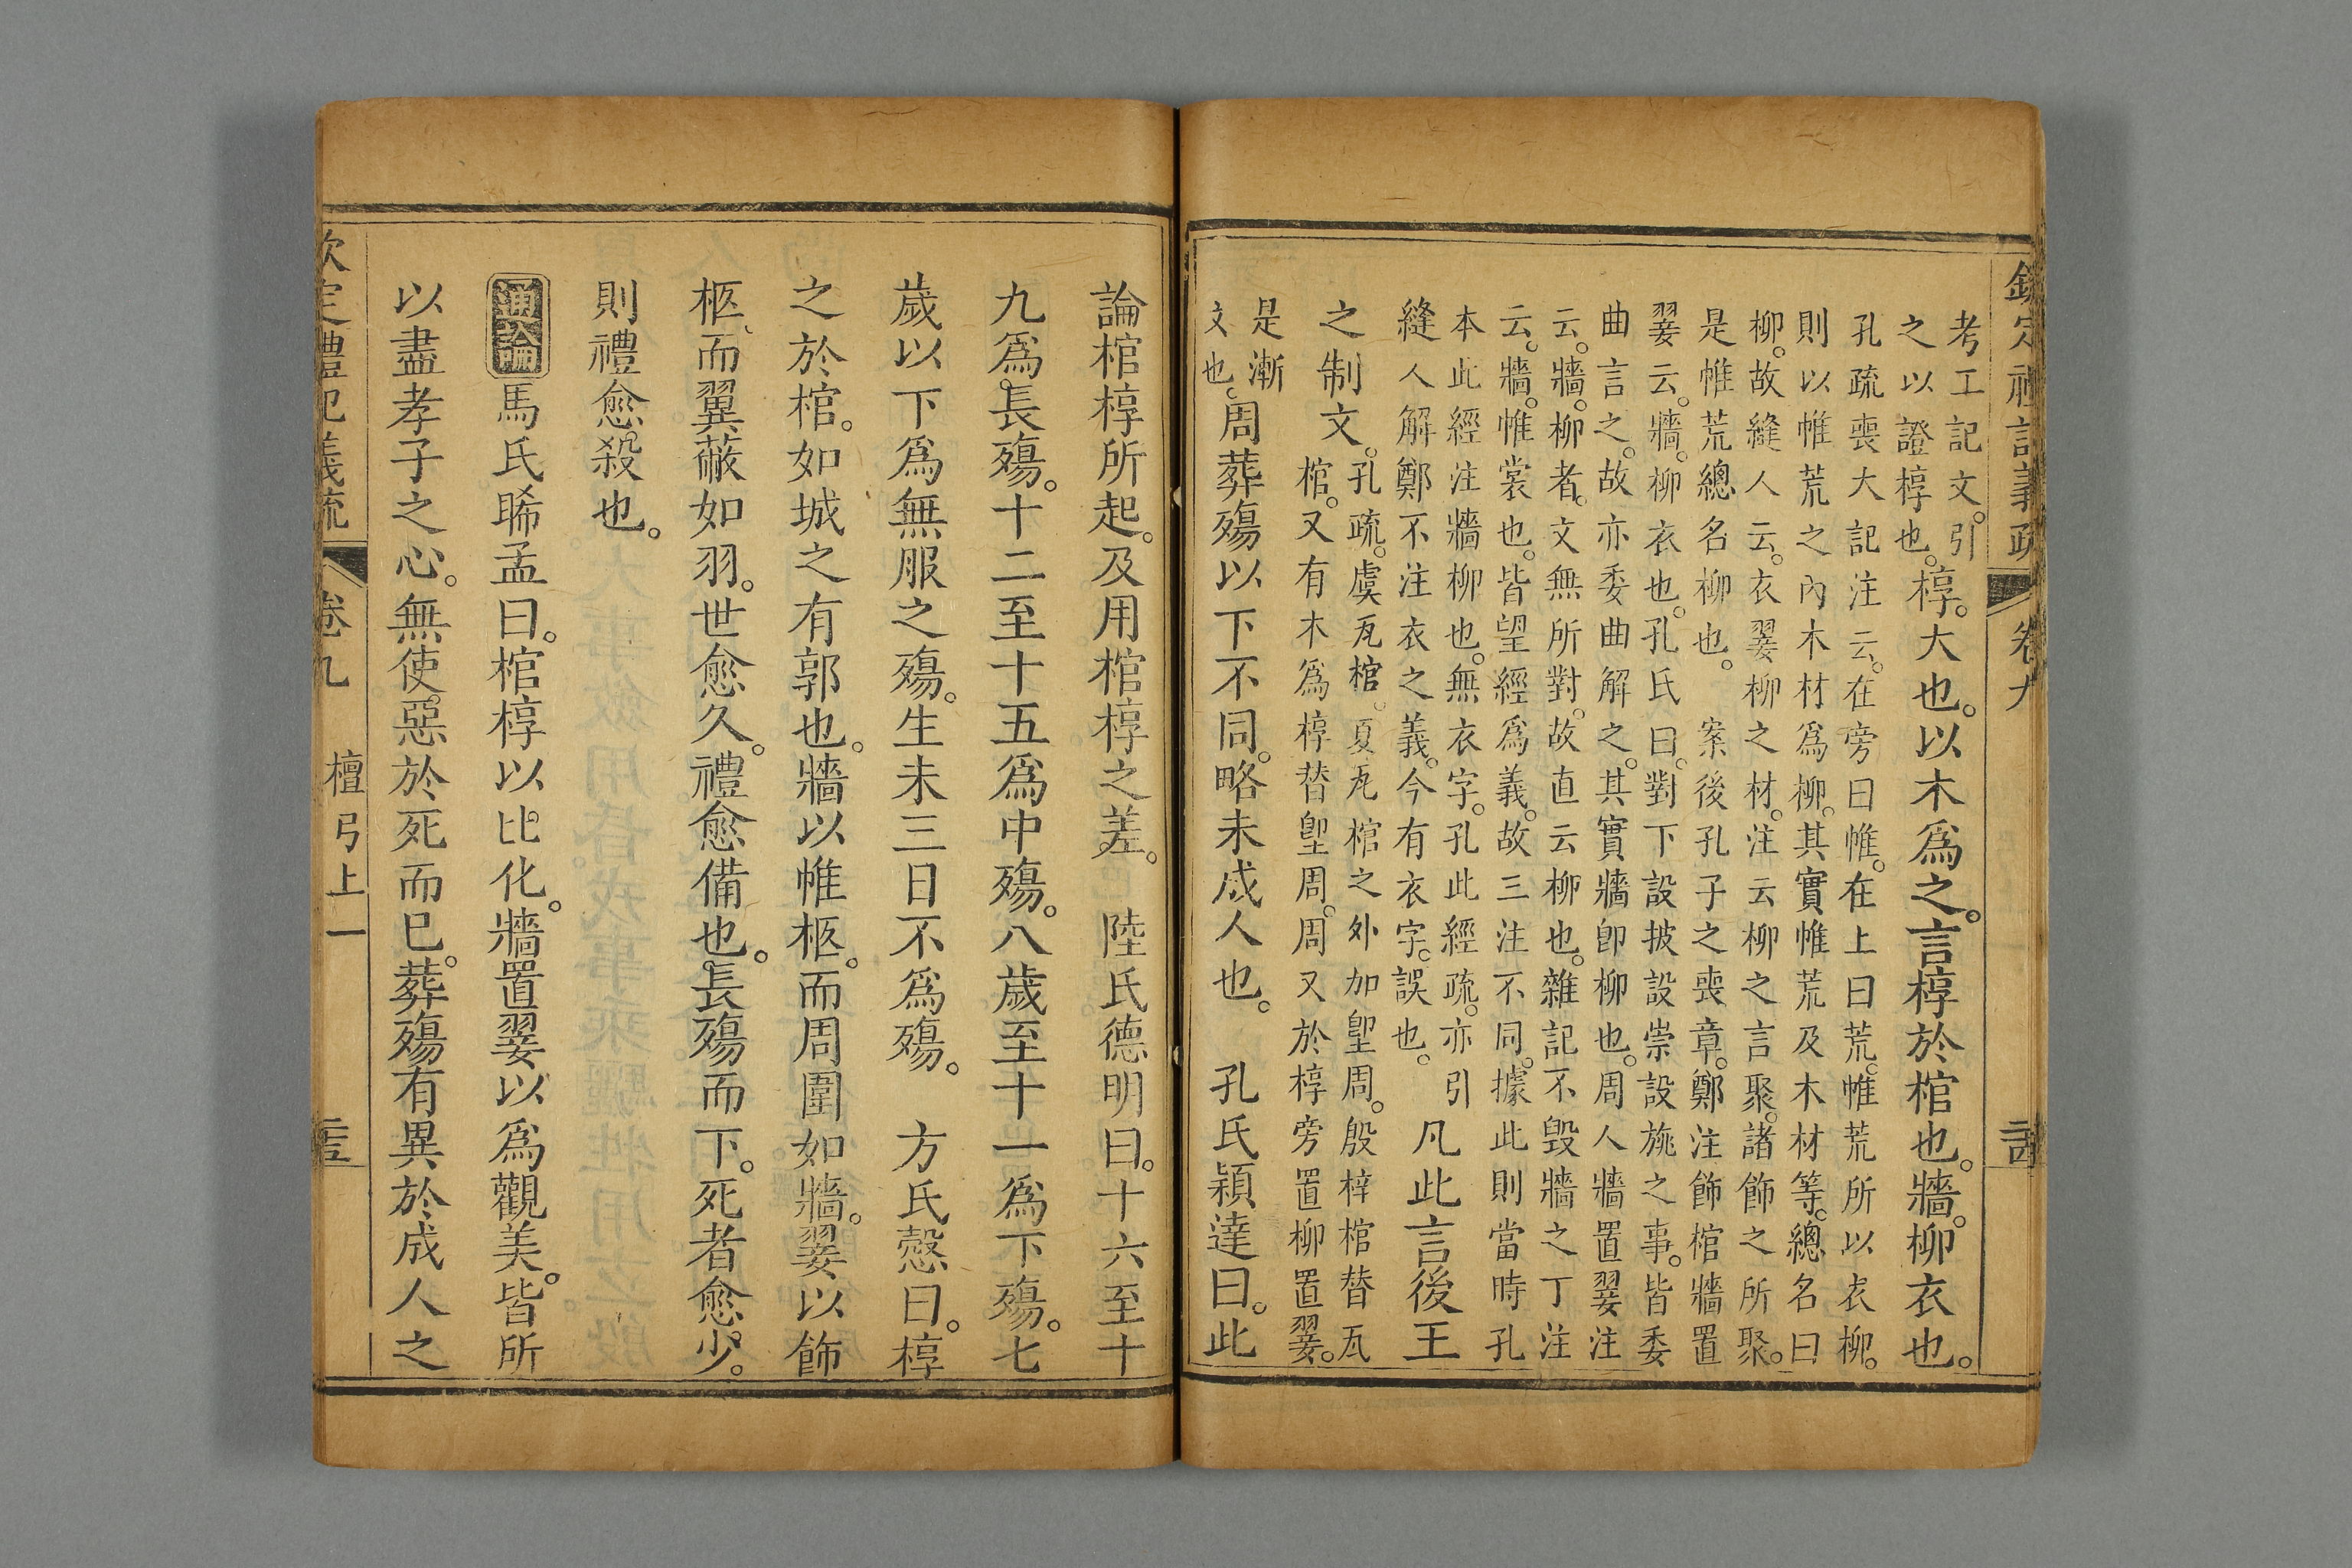 欽定禮記義疏 卷九
考工記文。引
之以證椁也。
椁。大也。以木爲之。言椁於棺也。牆。柳衣也。
孔疏喪大記注云。在旁曰帷。在上曰荒。帷荒所以衣柳。
則以帷荒之內木材爲柳。其實帷荒及木材等。總名曰
柳。故縫人云。衣翣柳之材。注云柳之言聚。諸飾之所聚。
是帷荒總名柳也。 案後孔子之喪章。鄭注飾棺牆置
翣云。牆。柳衣也。孔氏曰。對下設披設崇設旐之事。皆委
曲言之。故亦委曲解之。其實牆卽柳也。周人牆置翣注
云。牆。柳者。文無所對。故直云柳也。雜記不毀牆之丁注
云。牆。帷裳也。皆望經爲義。故三注不同。據此則當時孔
本此經注牆柳也。無衣字。孔此經疏。亦引
縫人解鄭不注衣之義。今有衣字。誤也。
凡此言後王
之制文。
孔疏。虞瓦棺。夏瓦棺之外加堲周。殷梓棺替瓦
棺。又有木爲椁替堲周。周又於椁旁置柳置翣。
是漸
文也。
周葬殤以下不同。略未成人也。 孔氏穎達曰。此
論棺椁所起。及用棺椁之差。 陸氏德明曰。十六至十
九爲長殤。十二至十五爲中殤。八歲至十一爲下殤。七
歲以下爲無服之殤。生未三日不爲殤。 方氏愨曰。椁
之於棺。如城之有郭也。牆以帷柩。而周圍如牆。翣以飾
柩、而翼蔽如羽。世愈久。禮愈備也。長殤而下。死者愈少。
則禮愈殺也。
通論馬氏睎孟曰。棺椁以比化。牆置翣以爲觀美。皆所
以盡孝子之心。無使惡於死而已。葬殤有異於成人之
欽定禮記義疏 卷九 檀弓上一